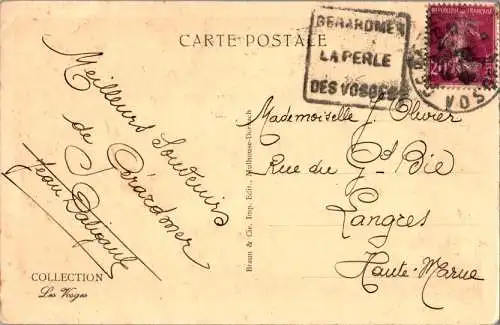 CARTE POSTALE
GERARDMER
LA PERLE
DES VOSGES
Meilleurs Souvenirs
de Gérardmer
Jean
COLLECTION
Les Vosges
Braun & Cie, Imp. Edit., Mulhouse-Dornach
Mademoiselle J. Olivier
Rue du Gd Bie
Langres
Haute-Marne